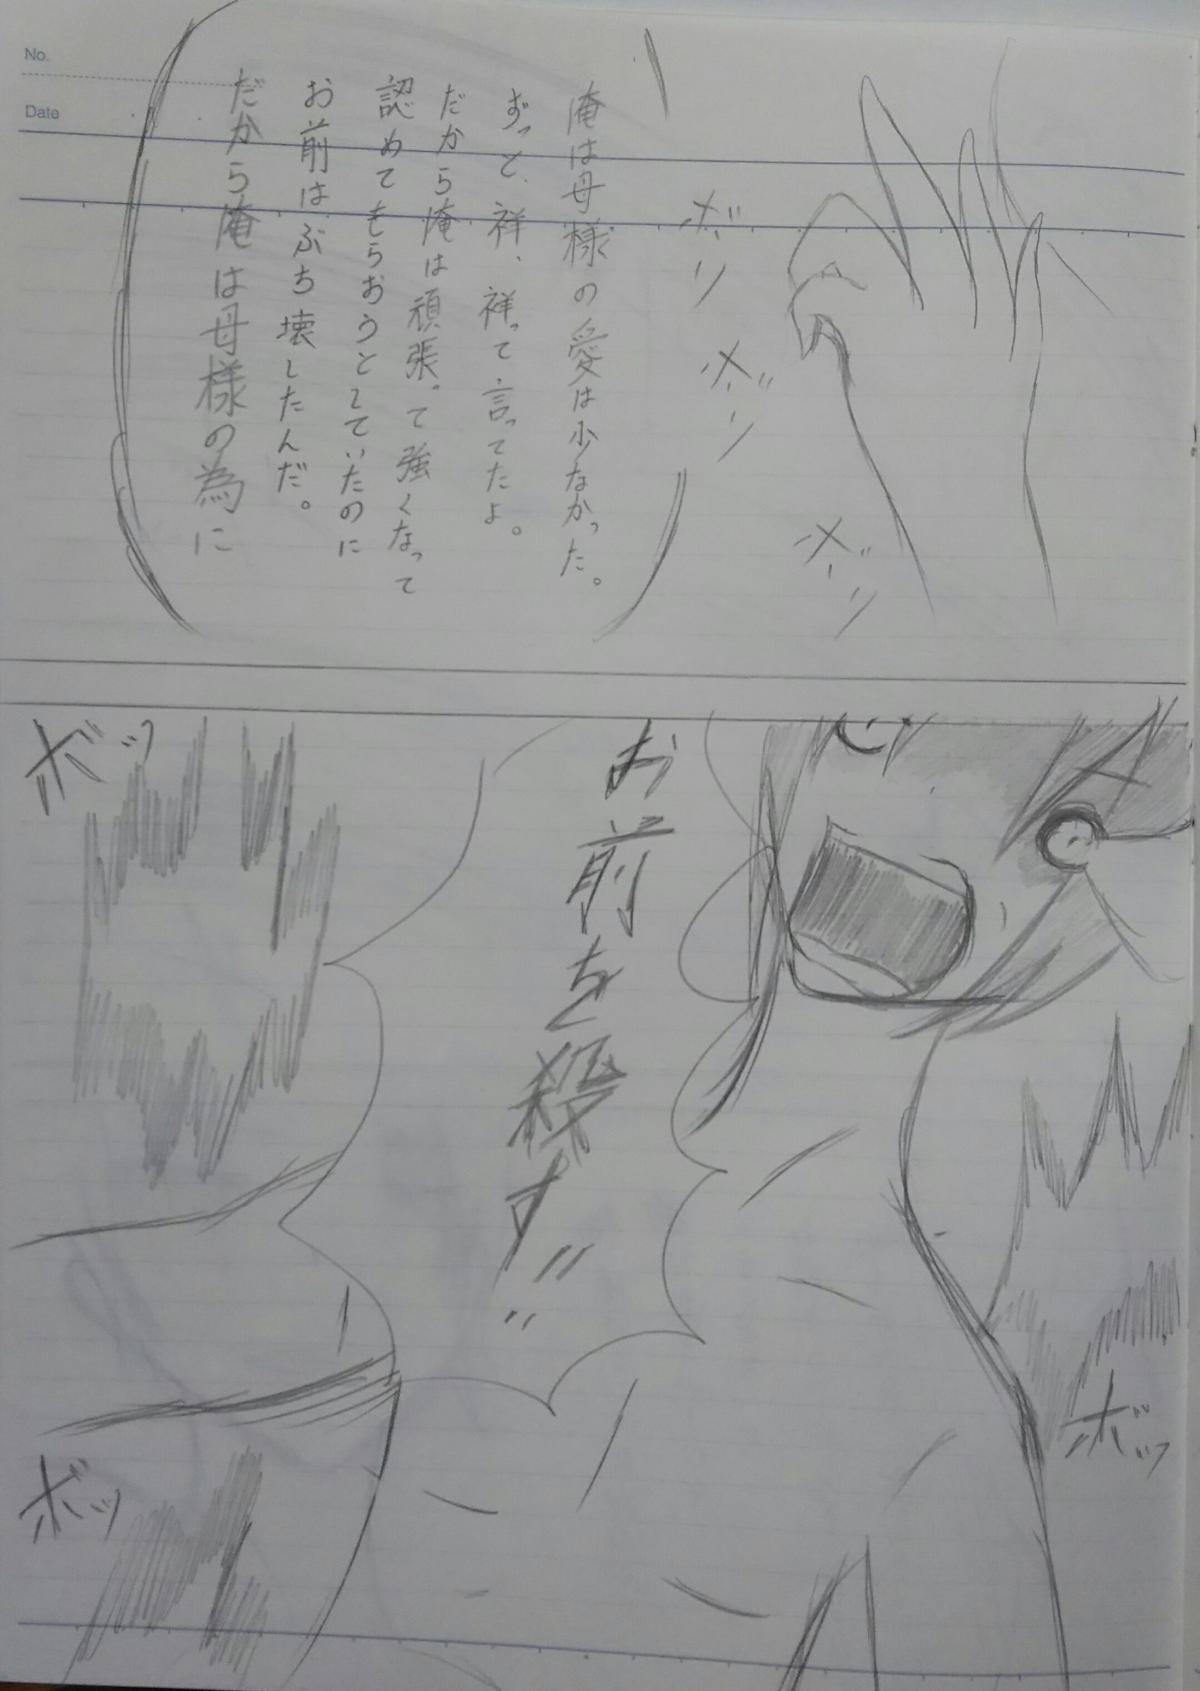 No.
Date
俺は母様の愛は少なかった。
ずっと、祥、祥って言ってたよ。
だから俺は頑張って強くなって
認めてもらおうとしていたのに
お前はぶち壊したんだ。
だから俺は母様の為に
メリ
メリ
メリ
お前を殺す!!
ボッ
ボッ
ボッ